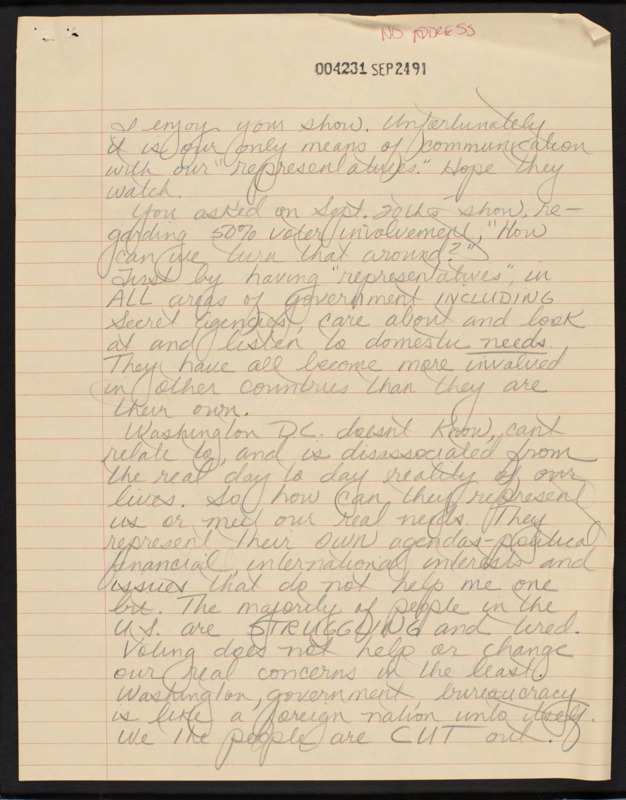 NO ADDRESS
004231 SEP 24 91
I enjoy your show. Unfortunately
it is our only means of communication
with our "representatives." Hope they
watch.
You asked on Sept. 20th's show, re-
garding 50% voter involvement, "How
can we turn that around?"
First by having "representatives", in
ALL areas of government INCLUDING
Secret Agencies, care about and look
at and listen to domestic needs.
They have all become more involved
in other countries than they are
their own.
Washington DC. doesnt know, cant
relate to, and is disassociated from
the real day to day reality of our
lives. So how can they represent
us or meet our real needs. They
represent their own agendas-political
financial, international, interests and
issues that do not help me one
bit. The majority of people in the
U.S. are STRUGGLING and tired.
Voting does not help or change
our real concerns in the least.
Washington, government bureaucracy
is like a foreign nation unto itself.
We the people are CUT out.